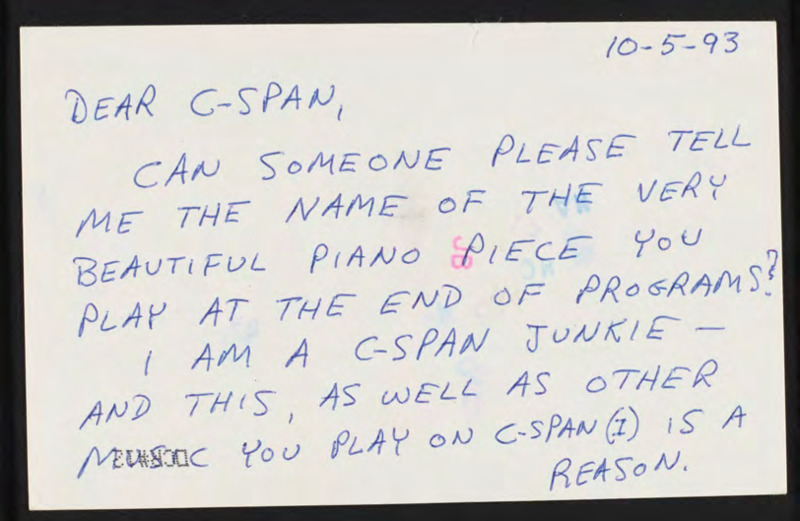 10-5-93
DEAR C-SPAN,
CAN SOMEONE PLEASE TELL
ME THE NAME OF THE VERY
BEAUTIFUL PIANO PIECE YOU
PLAY AT THE END OF PROGRAMS?
I AM A C-SPAN JUNKIE —
AND THIS, AS WELL AS OTHER
MUSIC YOU PLAY ON C-SPAN (I) IS A
REASON.